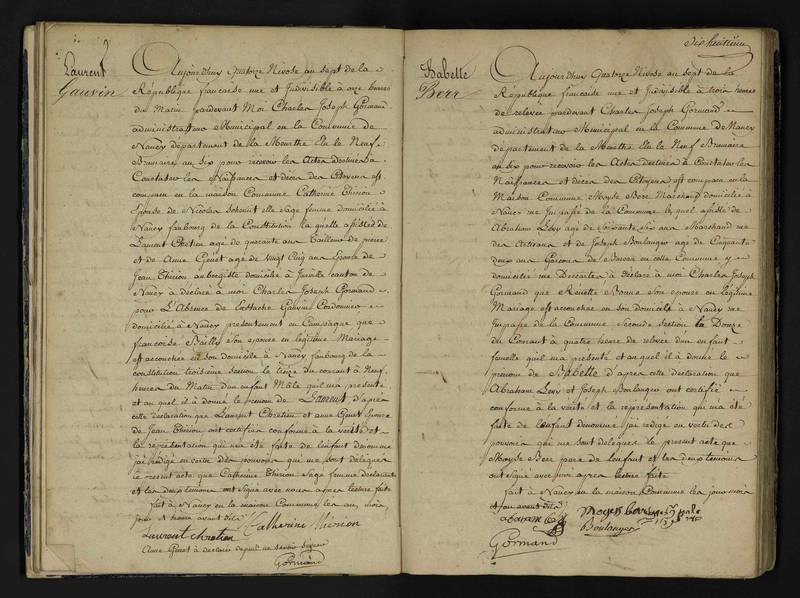 Laurent
Gauvin
Aujourdhuy Quatorze Nivose an sept de la
République francaise une et Indivisible à onze heures
du Matin pardevant Moi Charles Joseph Gormand
administrateur Municipal en la Commune de
Nancy département de la Meurthe Elu le Neuf
Brumaire an six pour recevoir les Actes destinés à
Constater les Naissances et décès des Citoyens est
comparu en la maison Commune Catherine Thirion
Epouse de Nicolas Schmit elle sage femme domiciliée à
Nancy faubourg de la Constitution laquelle assistée de
Laurent Chretien agé de quarante ans tailleur de pierre
et de Anne Genet agée de vingt Cinq ans Epouse de
Jean Thirion aubergiste domicilié à Jarville canton de
Nancy à déclaré à moi Charles Joseph Gormand
pour l'Absence de Eustache Gauvin Cordonnier
domicilié à Nancy présentement en Campagne que
francoise Bailly son epouse en légitime Mariage
est accouchée en son domicile à Nancy faubourg de la
constitution troisieme section le treize du courant à Neuf
heures du Matin d'un enfant Mâle quil m'a présenté
et au quel il à donné le prenom de Laurent d'après
cette déclaration que Laurent Chrétien et anne Genet Epouse
de Jean Thirion ont certifiée conforme à la vérité et
la représentation qui m'a été faite de l'enfant dénommé
jai rédigé en vertu des pouvoirs qui me sont délégués
le present acte que Catherine Thirion Sage femme déclarante
et les deux temoins ont signé avec nous après lecture faite
fait à Nancy en la maison Commune les an, mois
jour et heure avant dits
Laurent chretien Catherine thirion
Anne Genet a declaré depuis ne savoir signer
Gormand
dix huitieme
Isabelle
Berr
Aujourdhuy Quatorze Nivose an sept de la
République francaise une et Indivisible à trois heures
de relevée pardevant Charles Joseph Gormand
administrateur Municipal en la Commune de Nancy
département de la Meurthe Elu le Neuf Brumaire
an six pour recevoir les Actes destinés à Constater les
Naissances et décès des Citoyens est comparu en la
Maison Commune Moyse Berr Marchand domicilié à
Nancy rue Impasse de la Commune le quel assisté de
Abraham Levy agé de soixante six ans Marchand rue
des Artisans et de Joseph Boulanger agé de Cinquante
deux ans Garcon de Bureau en cette Commune y
domicilié à déclaré à moi Charles Joseph
Gormand que son epouse en légitime
Mariage est accouchée en son domicile à Nancy rue
Impasse de la Commune Seconde section le Douze
du Courant à quatre heures de relevée d'un enfant
femelle quil m'a présenté et au quel il à donné le
prenom de Isabelle d'après cette déclaration que
Abraham Levy et Joseph Boulanger ont certifié
conforme à la vérité et la représentation qui m'a été
faite de l'enfant dénommé jai rédigé en vertu des
pouvoirs qui me sont délégués le présent acte que
Moyse Berr pere de l'enfant et les deux temoins
ont signé avec moi après lecture faite
fait à Nancy en la maison Commune les jour mois
et an avant dits
Boulanger
Gormand